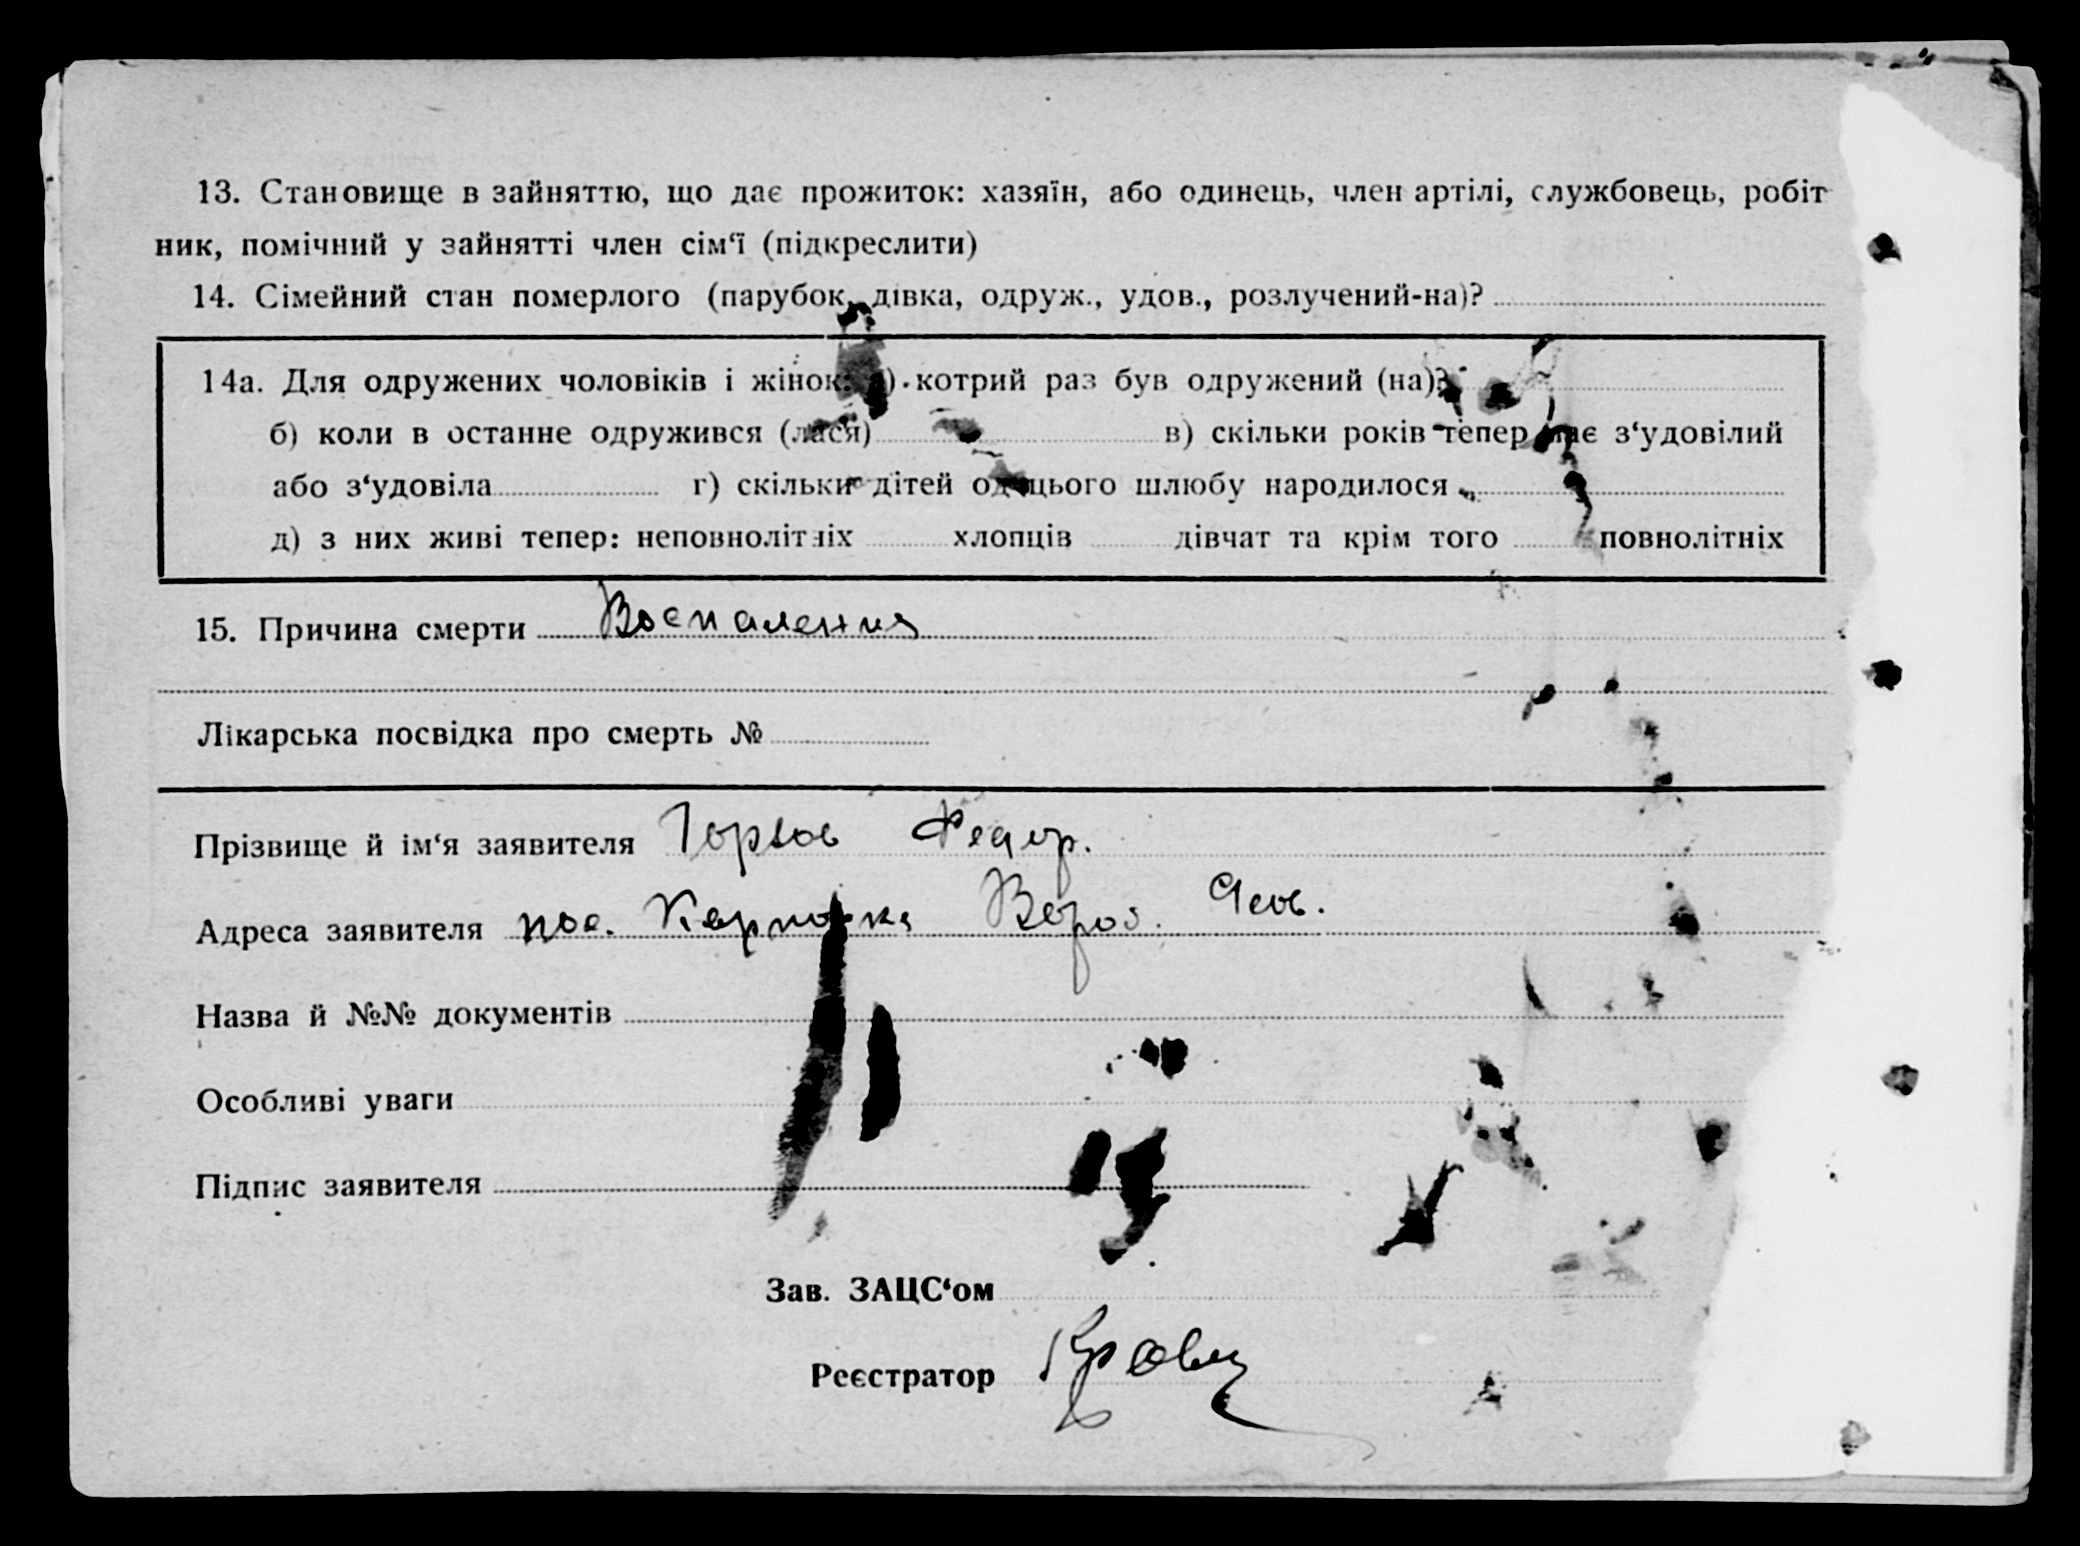 13. Становище в зайняттю, що дає прожиток: хазяїн, або одинець, член артілі, службовець, робіт
ник, помічний у зайнятті член сім‘ї (підкреслити)
14. Сімейний стан померлого (парубок, дівка, одруж., удов., розлучений-на)?
14а. Для одружених чоловіків і жінок: а) котрий раз був одружений (на)?
б) коли в останне одружився (лася) в) скільки років тепер має з‘удовілий
або з‘удовіла г) скільки дітей од цього шлюбу народилося
д) з них живі тепер: неповнолітніх хлопців дівчат та крім того повнолітніх
15. Причина смерти Воспаления
Лікарська посвідка про смерть №
Прізвище й ім‘я заявителя Федор.
Адреса заявителя пос. Карповка
Назва й №№ документів
Особливі уваги
Підпис заявителя
Зав. ЗАЦС‘ом
Реєстратор